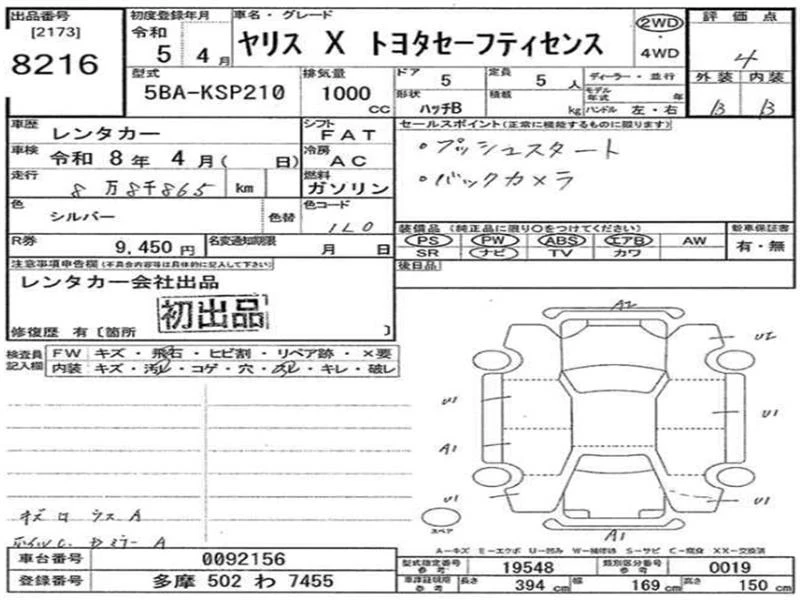 出品番号 初度登録年月 車名・グレード 2WD 評価点
[2173] 令和
8216 5 4月 ヤリス X トヨタセーフティセンス 4WD 4
型式 排気量 ドア 5 定員 5人 ディーラー・並行 外装 内装
5BA-KSP210 1000 CC 形状 ハッチB 積載 kg モデル年式 年 ハンドル 左・右 B B
車歴 レンタカー シフト FAT セールスポイント(正常に機能するものに限ります)
車検 令和 8年 4月( 日) 冷房 AC ・プッシュスタート
走行 8万8千865 km 燃料 ガソリン ・バックカメラ
色 シルバー 色替 色コード 1L0
R券 9,450円 名変通知期限 月 日 装備品 (純正品に限り○をつけてください) 新車保証書
PS PW ABS エアB AW 有・無
SR ナビ TV カワ
注意事項申告欄(不具合内容等は具体的に記入して下さい) 後日品
レンタカー会社出品
初出品
修復歴 有〔箇所 〕
検査員記入欄 FW キズ・飛石・ヒビ割・リペア跡・×要
内装 キズ・汚れ・コゲ・穴・・キレ・破し
A2
U2
U1 U1
A1
U1 U1
スペア
A1
キズ ロ ウス A
A
A-キズ E-エクボ U-凹み W-補修跡 S-サビ C-腐食 XX-交換済
車台番号 0092156 型式指定番号 参考 19548 類別区分番号 参考 0019
登録番号 多摩 502 わ 7455 車検証記載 参考 長さ 394 cm 幅 169 cm 高さ 150 cm